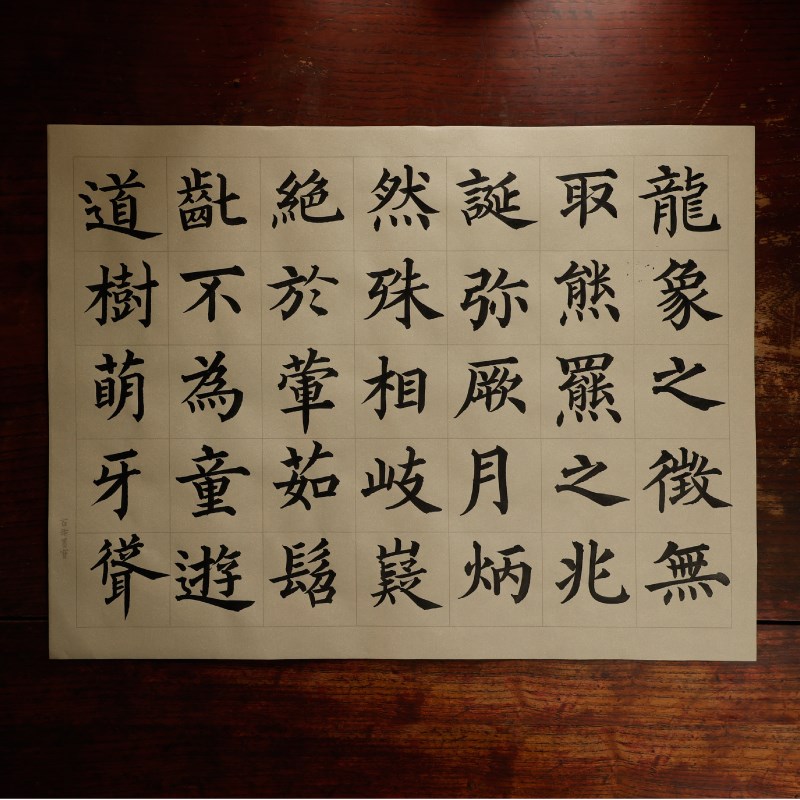 龍象之徵無
取熊羆之兆
誕弥厥月炳
然殊相岐嶷
絶於葷茹髫
齔不為童遊
道樹萌牙聳